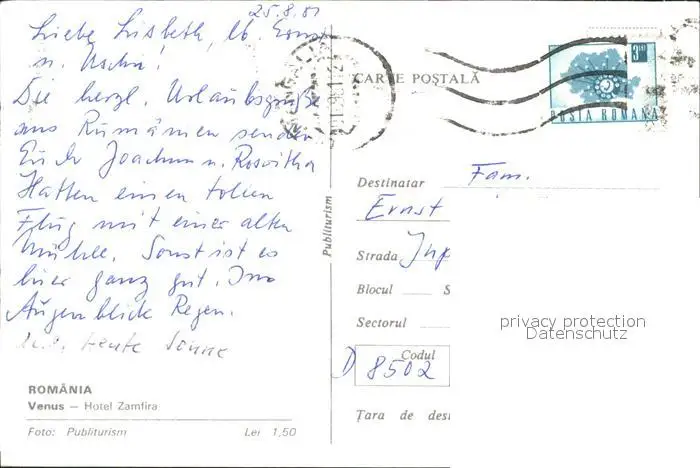 25.8.81
Liebe Lisbeth, lb. Ernst
u. Uschi!
Die herzl. Urlaubsgrüße
aus Rumänien senden
Euch Joachim u. Roswitha
Hatten einen tollen
Flug mit einer alten
Mühle. Sonst ist es
hier ganz gut. Im
Augenblick Regen.
heute Sonne
ROMÂNIA
Venus — Hotel Zamfira
Foto: Publiturism Lei 1,50
Publiturism
CARTE POȘTALĂ
3 LEI
POSTA ROMANA
Destinatar Fam.
Ernst
Strada
Blocul S
Sectorul
Codul
D 8502
Țara de des
privacy protection
Datenschutz